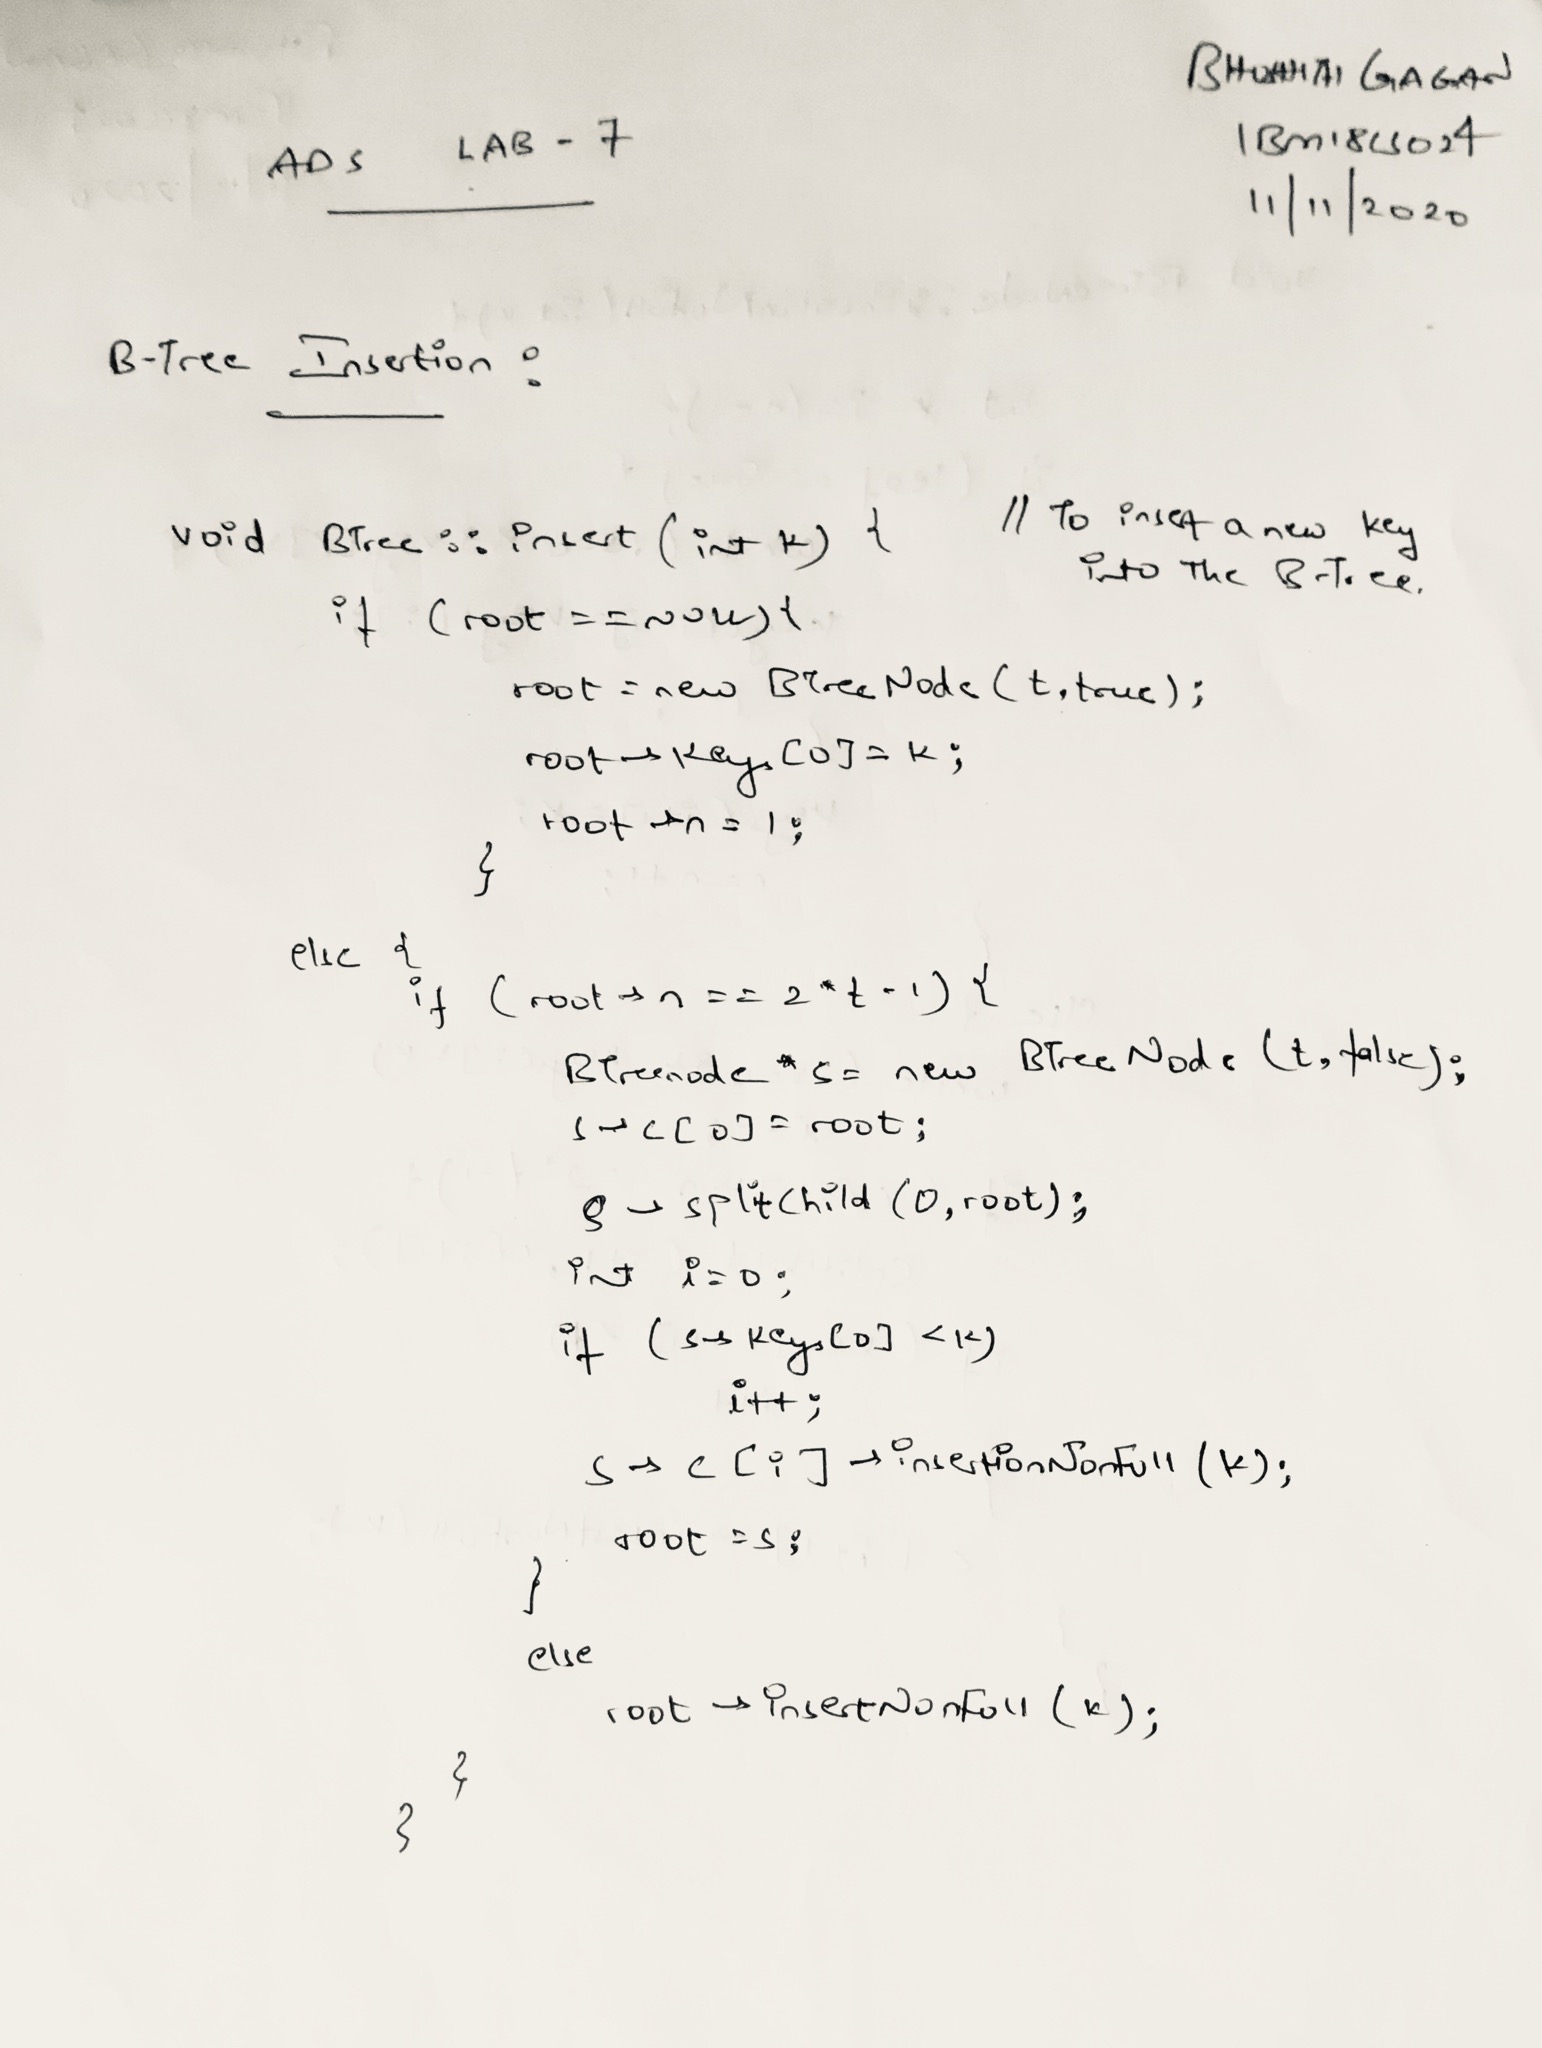 GAGAN
ADS LAB - 7
1BM18CS024
11/11/2020
B-Tree Insertion :
void BTree :: insert (int k) { // To insert a new key
into The B-Tree.
if (root == NULL) {
root = new BTreeNode (t, true);
root → keys [0] = k;
root → n = 1;
}
else {
if (root → n == 2 * t - 1) {
BTreenode * s = new BTreeNode (t, false);
s → c[0] = root;
s → splitChild (0, root);
int i = 0;
if (s → keys[0] < k)
i++;
s → c [i] → insertionNonFull (k);
root = s;
}
else
root → insertNonFull (k);
}
}